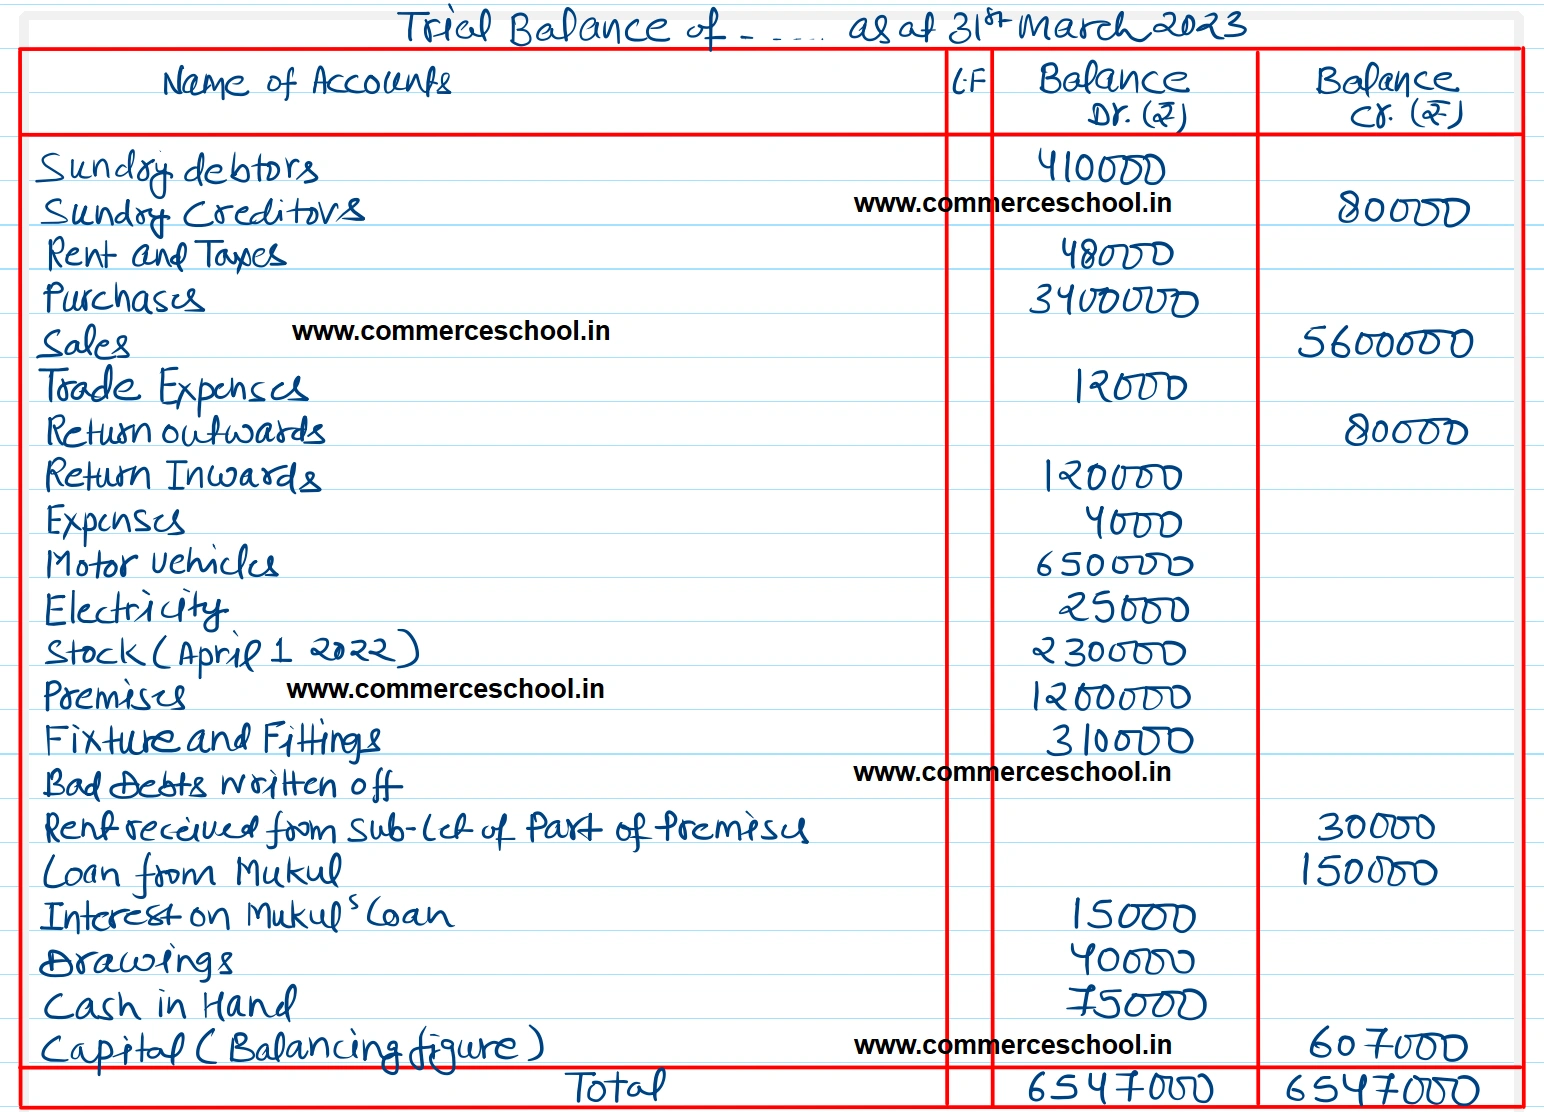 Trial Balance of - ..... as at 31st March 2023
Name of Accounts L.F Balance Dr. (₹) Balance Cr. (₹)
Sundry debtors 410000
www.commerceschool.in
Sundry Creditors 80000
Rent and Taxes 48000
Purchases 3400000
www.commerceschool.in
Sales 5600000
Trade Expenses 12000
Return outwards 80000
Return Inwards 120000
Expenses 4000
Motor vehicles 650000
Electricity 25000
Stock (April 1 2022) 230000
Premises 1200000
www.commerceschool.in
Fixture and Fittings 310000
www.commerceschool.in
Bad Debts written off
Rent received from sub-let of Part of Premises 30000
Loan from Mukul 150000
Interest on Mukul's Loan 15000
Drawings 40000
Cash in Hand 75000
Capital (Balancing figure) 607000
www.commerceschool.in
Total 6547000 6547000